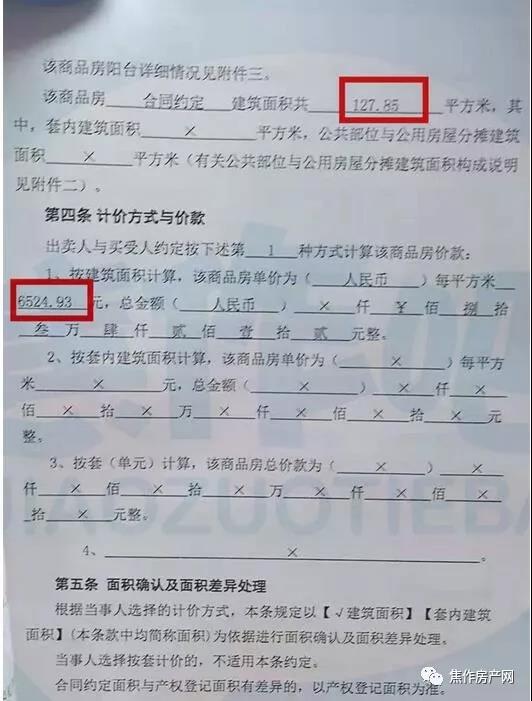 该商品房阳台详细情况见附件三。
该商品房 合同约定 建筑面积共 127.85 平方米，其
中，套内建筑面积 × 平方米，公共部位与公用房屋分摊建筑
面积 × 平方米（有关公共部位与公用房屋分摊建筑面积构成说明
见附件二）。
第四条 计价方式与价款
出卖人与买受人约定按下述第 1 种方式计算该商品房价款：
1、按建筑面积计算，该商品房单价为（ 人民币 ）每平方米
6524.93 元，总金额（ 人民币 ） × 仟 ¥ 佰 捌 拾
叁 万 肆 仟 贰 佰 壹 拾 贰 元整。
2、按套内建筑面积计算，该商品房单价为（ × ）每平方
米 × 元，总金额（ × ） × 仟 ×
佰 × 拾 × 万 × 仟 × 佰 × 拾 × 元
整。
3、按套（单元）计算，该商品房总价款为（ × ） ×
仟 × 佰 × 拾 × 万 × 仟 × 佰 ×
拾 × 元整。
4、 × 。
第五条 面积确认及面积差异处理
根据当事人选择的计价方式，本条规定以【√建筑面积】【套内建筑
面积】(本条款中均简称面积)为依据进行面积确认及面积差异处理。
当事人选择按套计价的，不适用本条约定。
合同约定面积与产权登记面积有差异的，以产权登记面积为准。
焦作房产网